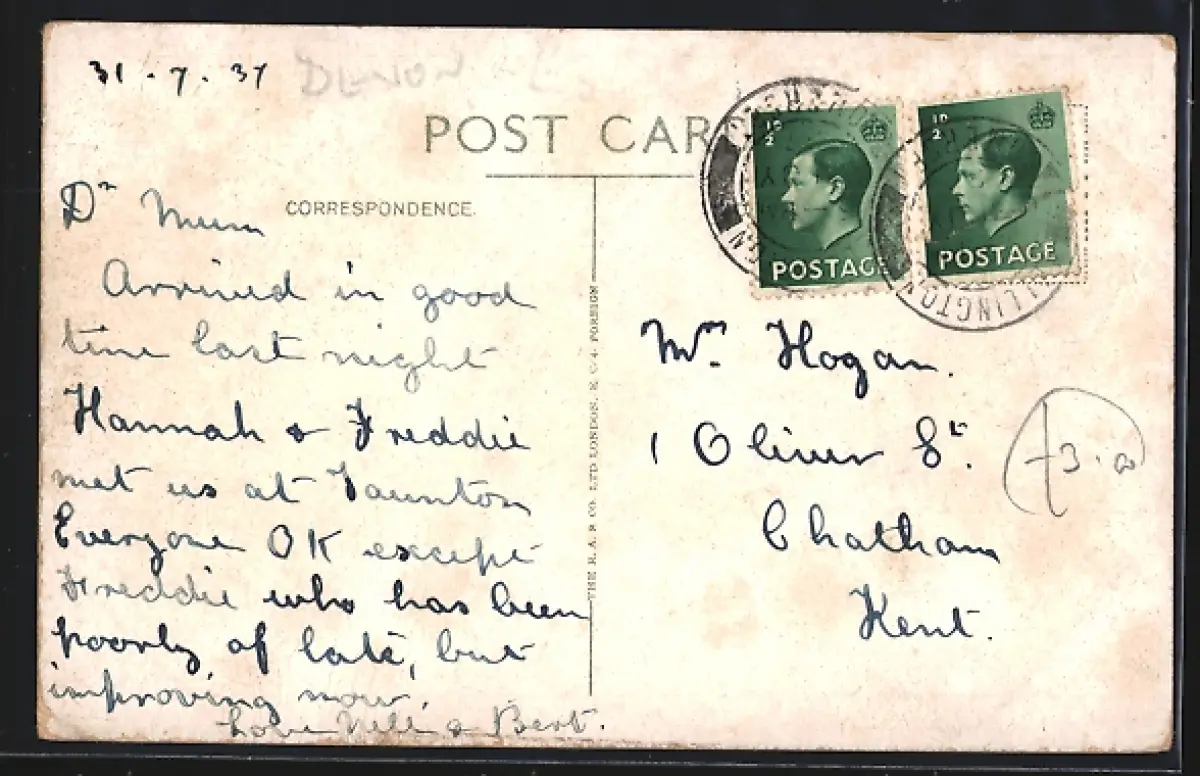 31 - 7 - 37
DEVON
POST CAR
CORRESPONDENCE.
Dr Mum
Arrived in good
time last night
Hannah & Freddie
met us at Taunton
Everyone OK except
Freddie who has been
poorly of late, but
improving now.
Love Nell & Bert.
THE R.A.P. CO. LTD LONDON. E.C.4. FOREIGN
½D
POSTAGE
½D
POSTAGE
LINGTON
Mrs Hogan.
1 Oliver St.
Chatham
Kent.